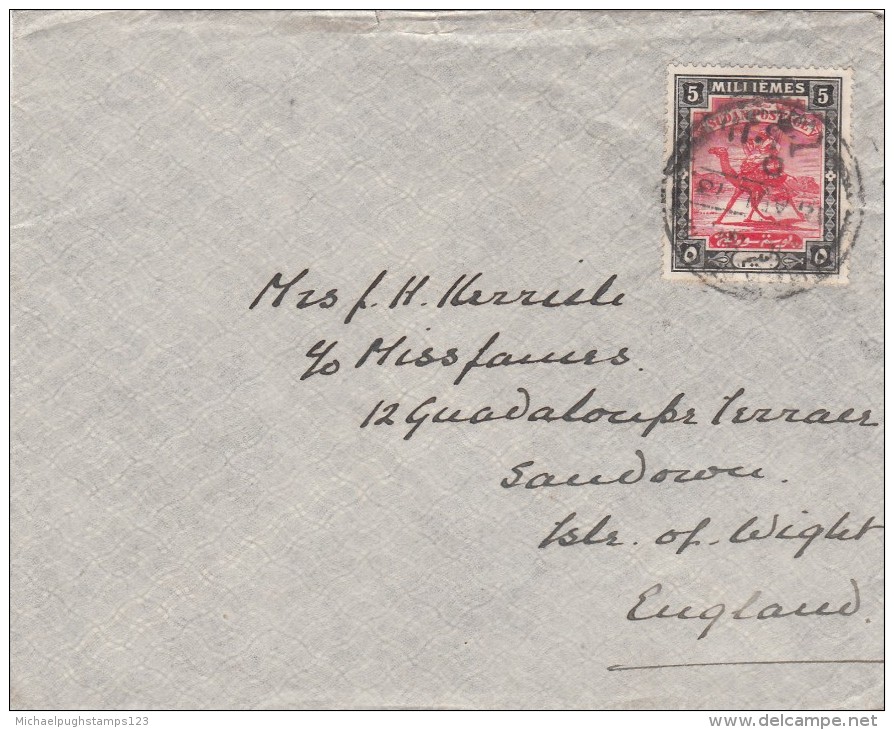 5 MILLIÈMES 5
SUDAN POSTAGE
٥ ٥
Mrs J. H. Kerrisle
c/o Miss James.
12 Guadaloupe Terrace
Sandown.
Isle. of. Wight
England.
Michaelpughstamps123
delcampe.net